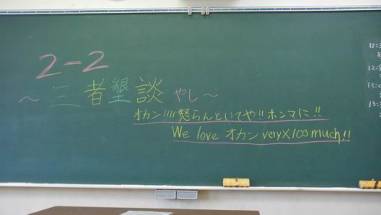 2-2
～三者墾談 やし～
オカン!!!!怒らんといてや!!ホンマに!!
We love オカン very×100 much!!